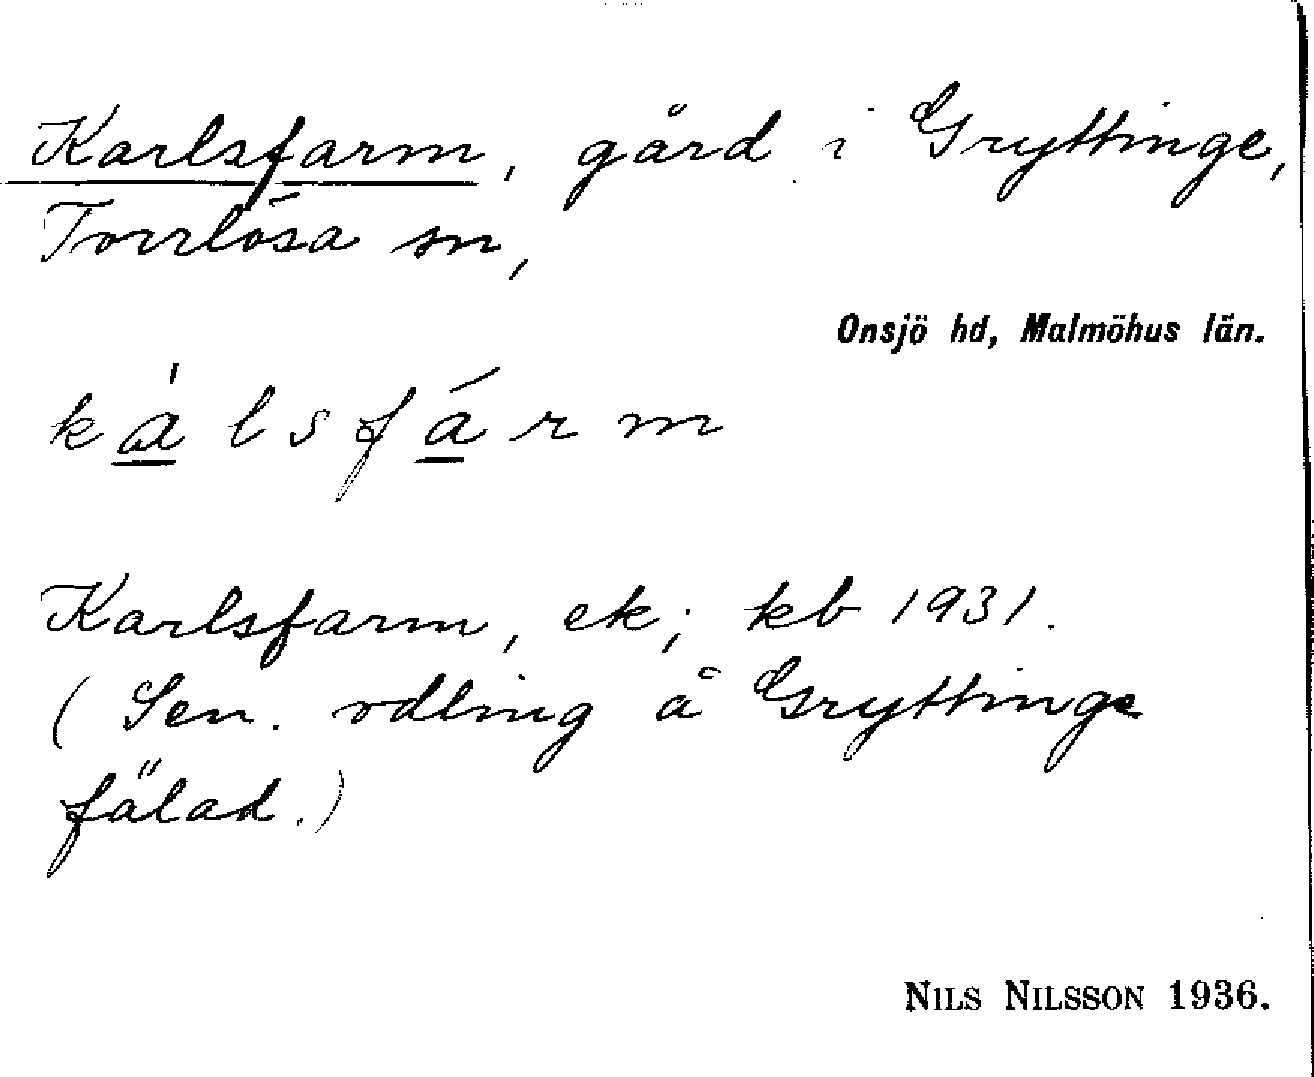 Karlsfarm, gård i Gryttinge,
Torrlösa sn,
Onsjö hd, Malmöhus län.
kálsfárm
Karlsfarm, ek; kb 1931.
(Sen. odling å Gryttinge
fälad.)
NILS NILSSON 1936.